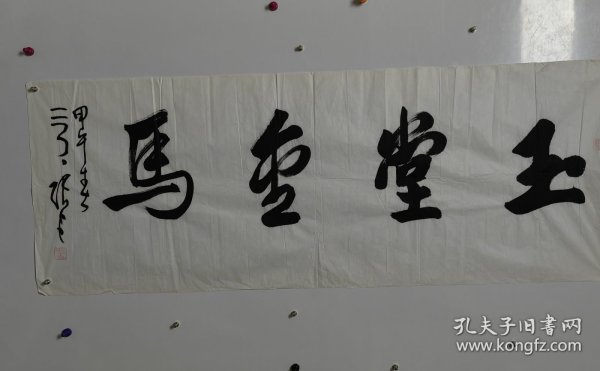 玉堂金馬
甲午
孔夫子旧書网
www.kongfz.com